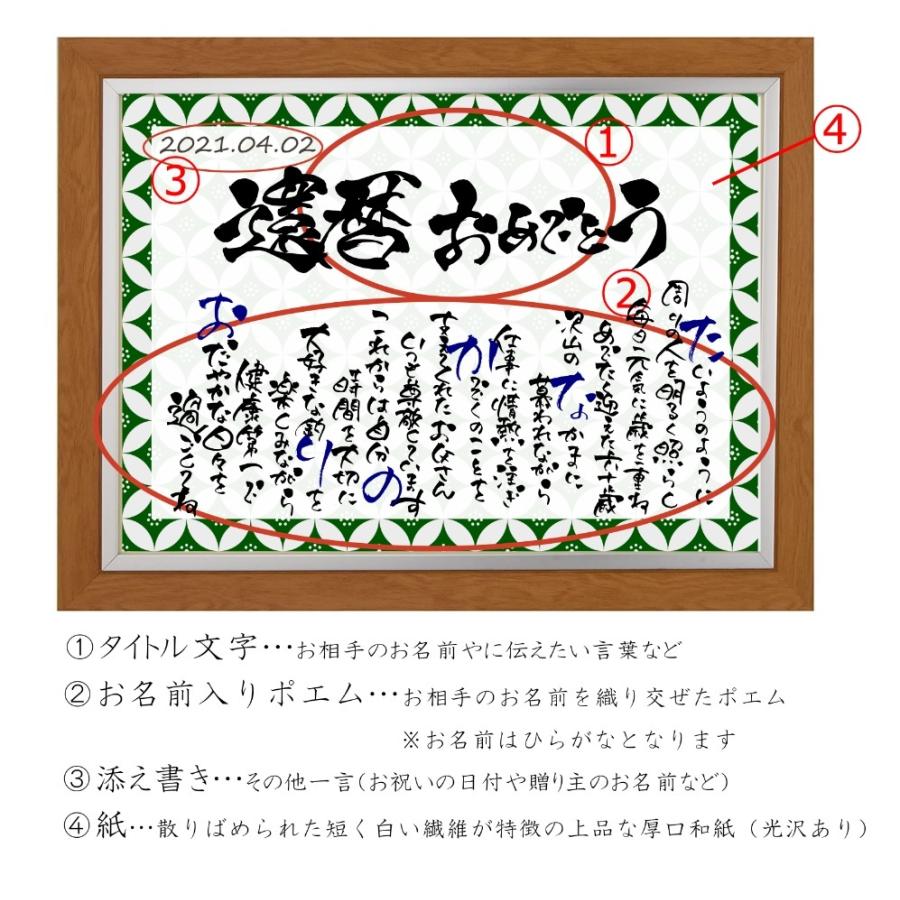 2021.04.02
①
④
③
還暦 おめでとう
②
たいようのように
周りの人を明るく照らし
毎日元気に歳を重ね
めでたく迎えた六十歳
なかまに
沢山の
慕われながら
仕事に情熱を注ぎ
かぞくのことを
支えてくれたお父さん
いつも尊敬しています
これからは自分の
時間を大切に
大好きな釣りを
楽しみながら
健康第一で
おだやかな日々を
過ごしてね
①タイトル文字…お相手のお名前やに伝えたい言葉など
②お名前入りポエム…お相手のお名前を織り交ぜたポエム
※お名前はひらがなとなります
③添え書き…その他一言(お祝いの日付や贈り主のお名前など)
④紙…散りばめられた短く白い繊維が特徴の上品な厚口和紙（光沢あり）